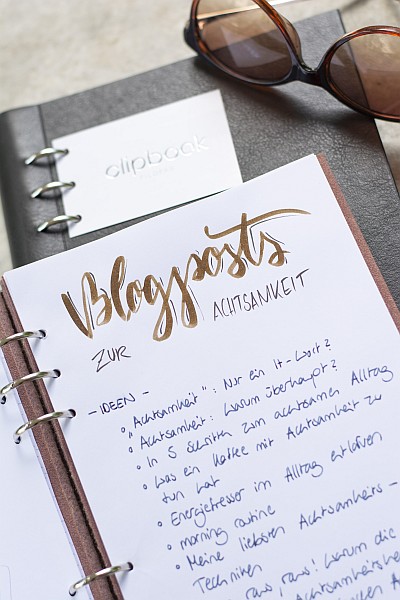 clipbook
Blogposts
ZUR ACHTSAMKEIT
- IDEEN -
• "Achtsamkeit": Nur ein It-Wort?
• Achtsamkeit: Warum überhaupt?
• In 5 Schritten zum achtsamen Alltag
• Was ein Kaffee mit Achtsamkeit zu
tun hat
• Energiefresser im Alltag entlarven
• morning routine
• Meine liebsten Achtsamkeits-
Techniken
raus! Warum die